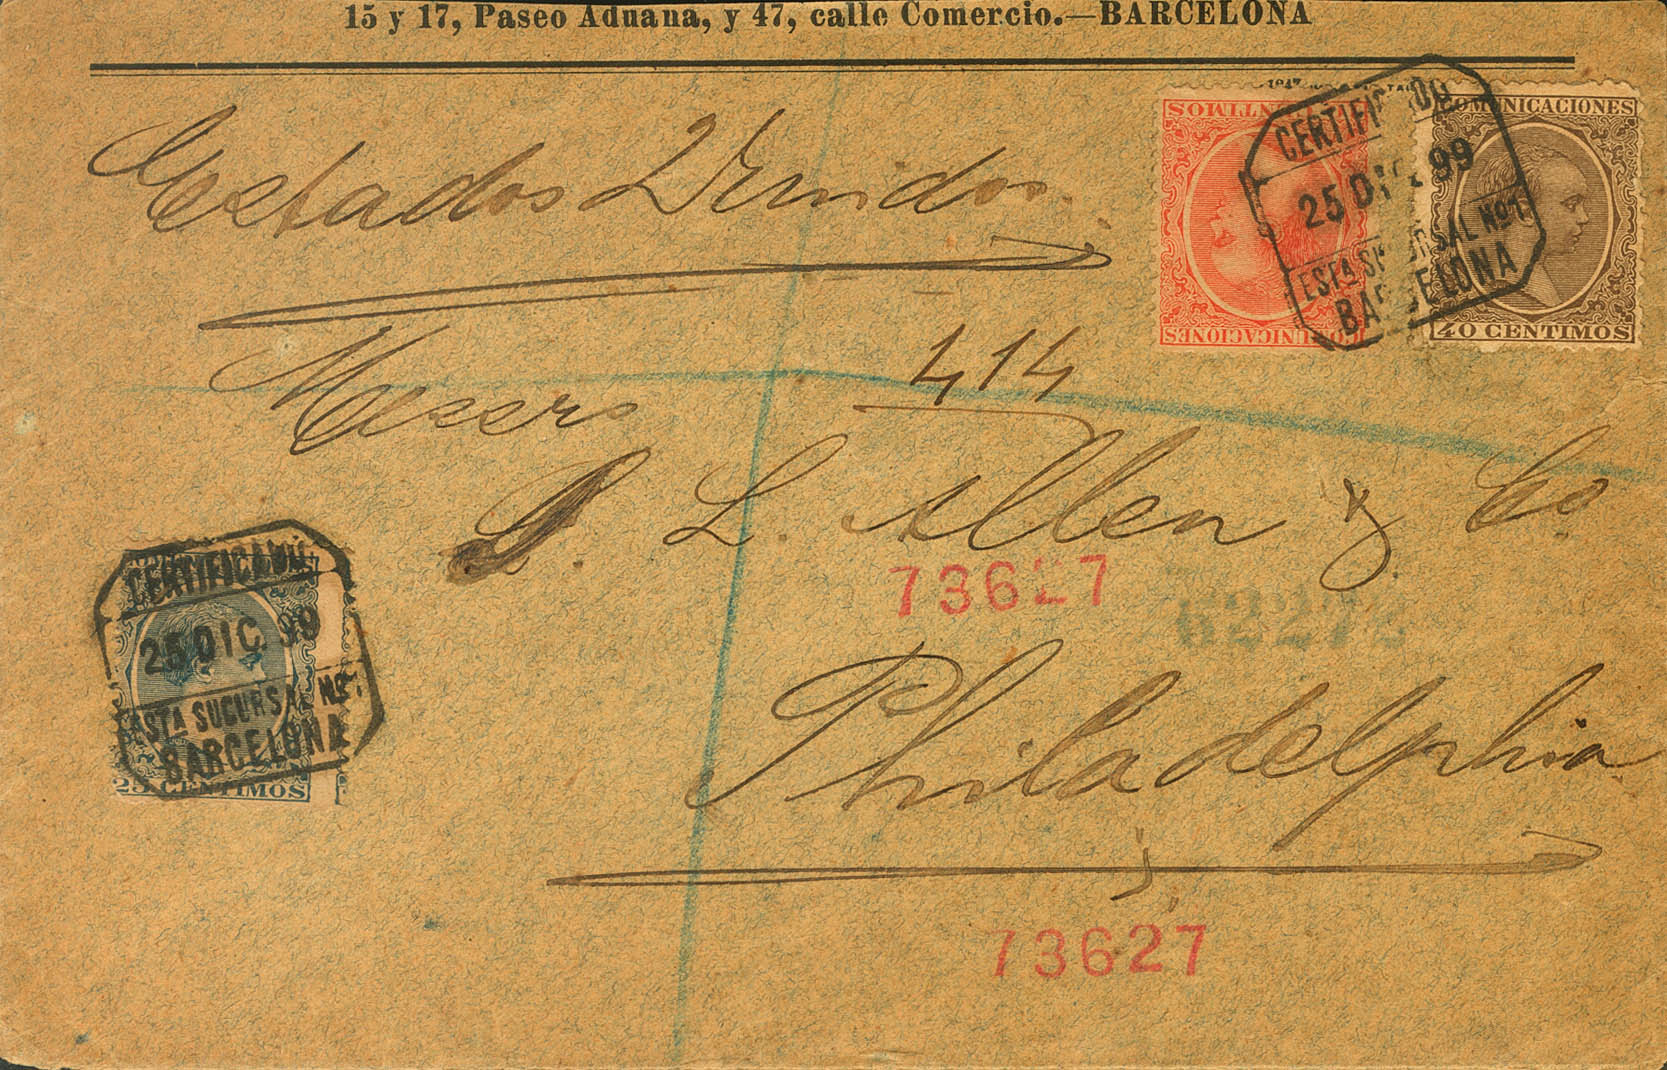 15 y 17, Paseo Aduana, y 47, calle Comercio.—BARCELONA
Estados Unidos
CENTIMOS
COMUNICACIONES
CERTIFICADO
25 DIC. 99
ESTA SUCURSAL No 1.
BARCELONA
COMUNICACIONES
40 CENTIMOS
414
Messrs
S. L. Allen & Co
73627
62272
CERTIFICADO
25 DIC. 99
ESTA SUCURSAL No 1.
BARCELONA
25 CENTIMOS
Philadelphia
73627